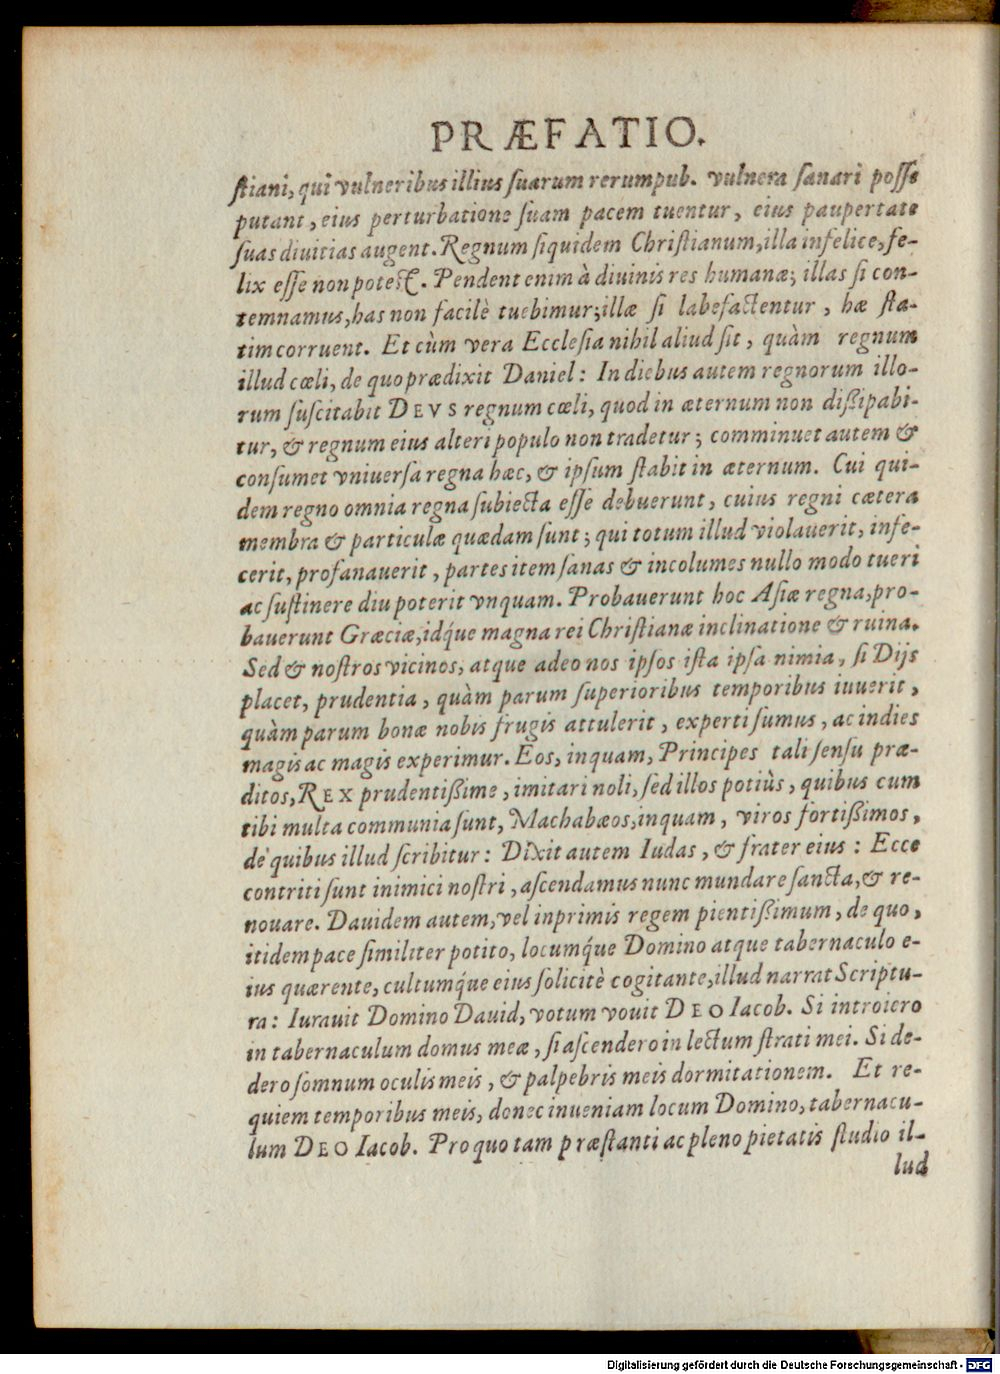 PRÆFATIO.
ſtiani, qui vulneribus illius ſuarum rerumpub. vulnera ſanari poſſe
putant, eius perturbatione ſuam pacem tuentur, eius paupertate
ſuas diuitias augent. Regnum ſiquidem Chriſtianum, illa infelice, fe-
lix eſſe non poteſt. Pendent enim à diuinis res humanæ; illas ſi con-
temnamus, has non facilè tuebimur; illæ ſi labefactentur, hæ ſta-
tim corruent. Et cùm vera Eccleſia nihil aliud ſit, quàm regnum
illud cœli, de quo prædixit Daniel: In diebus autem regnorum illo-
rum ſuſcitabit DEVS regnum cœli, quod in æternum non dißipabi-
tur, & regnum eius alteri populo non tradetur; comminuet autem &
conſumet vniuerſa regna hæc, & ipſum ſtabit in æternum. Cui qui-
dem regno omnia regna ſubiecta eſſe debuerunt, cuius regni cætera
membra & particulæ quædam ſunt; qui totum illud violauerit, infe-
cerit, profanauerit, partes item ſanas & incolumes nullo modo tueri
ac ſuſtinere diu poterit vnquam. Probauerunt hoc Aſiæ regna, pro-
bauerunt Græciæ, idq́ue magna rei Chriſtianæ inclinatione & ruina.
Sed & noſtros vicinos, atque adeo nos ipſos iſta ipſa nimia, ſi Dijs
placet, prudentia, quàm parum ſuperioribus temporibus iuuerit,
quàm parum bonæ nobis frugis attulerit, experti ſumus, ac indies
magis ac magis experimur. Eos, inquam, Principes tali ſenſu præ-
ditos, REX prudentißime, imitari noli, ſed illos potiùs, quibus cum
tibi multa communia ſunt, Machabæos, inquam, viros fortißimos,
de quibus illud ſcribitur: Dixit autem Iudas, & frater eius: Ecce
contriti ſunt inimici noſtri, aſcendamus nunc mundare ſancta, & re-
nouare. Dauidem autem, vel inprimis regem pientißimum, de quo,
itidem pace ſimiliter potito, locumq́ue Domino atque tabernaculo e-
ius quærente, cultumq́ue eius ſolicitè cogitante, illud narrat Scriptu-
ra: Iurauit Domino Dauid, votum vouit DEO Iacob. Si introiero
in tabernaculum domus meæ, ſi aſcendero in lectum ſtrati mei. Si de-
dero ſomnum oculis meis, & palpebris meis dormitationem. Et re-
quiem temporibus meis, donec inueniam locum Domino, tabernacu-
lum DEO Iacob. Pro quo tam præſtanti ac pleno pietatis ſtudio il-
lud
Digitalisierung gefördert durch die Deutsche Forschungsgemeinschaft - DFG